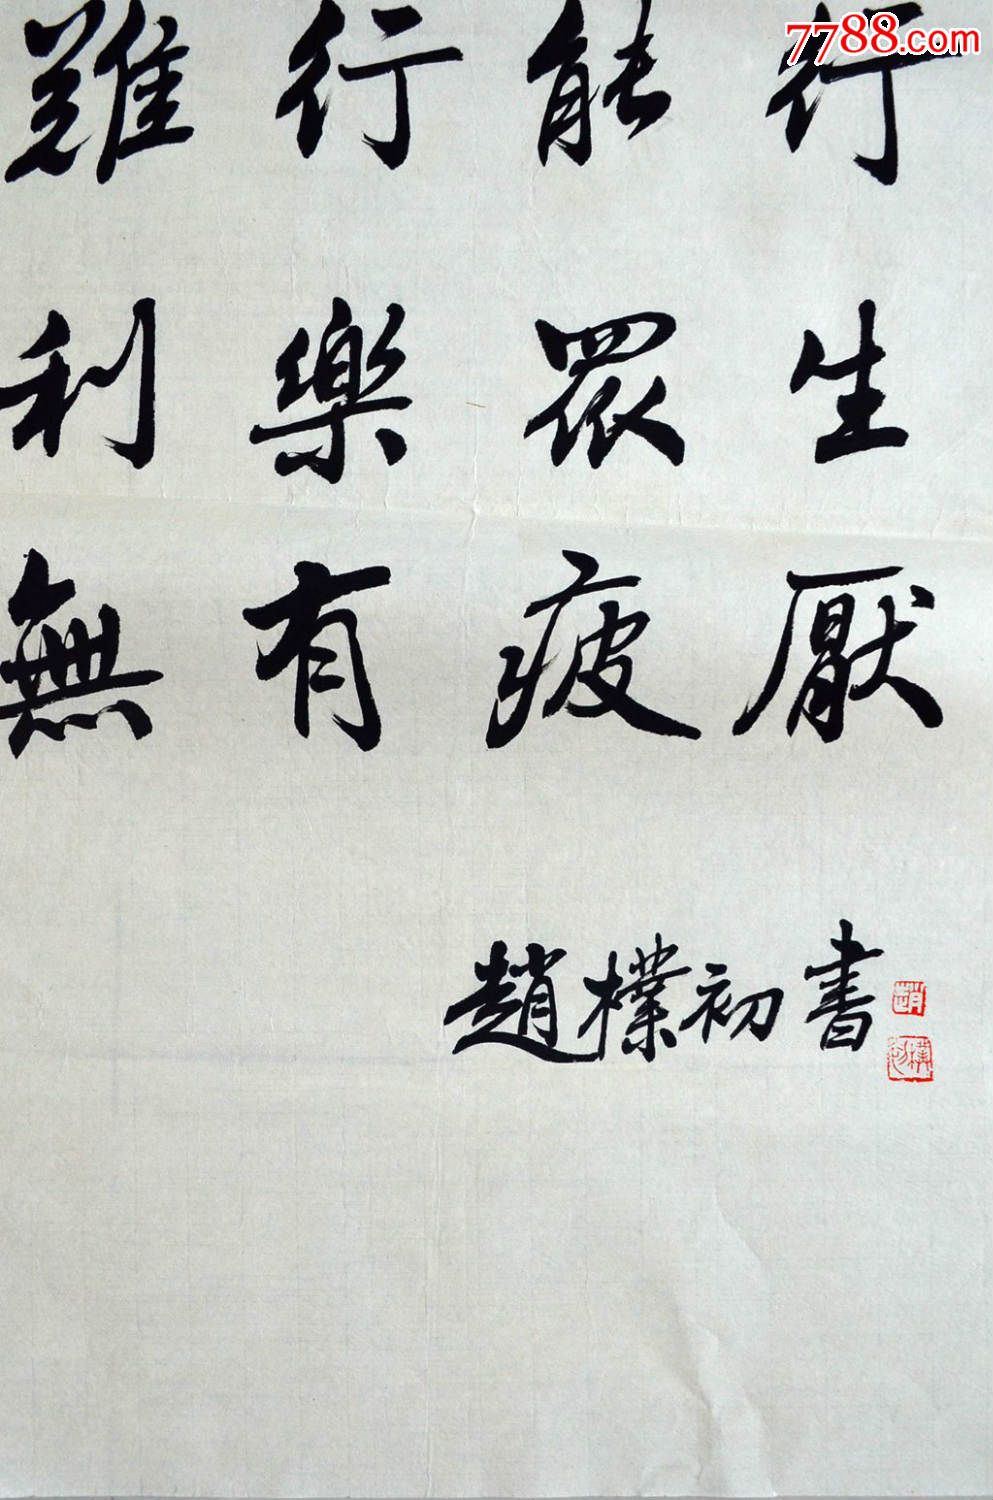 7788.com
難行能行
利樂眾生
無有疲厭
趙樸初書
趙
樸初